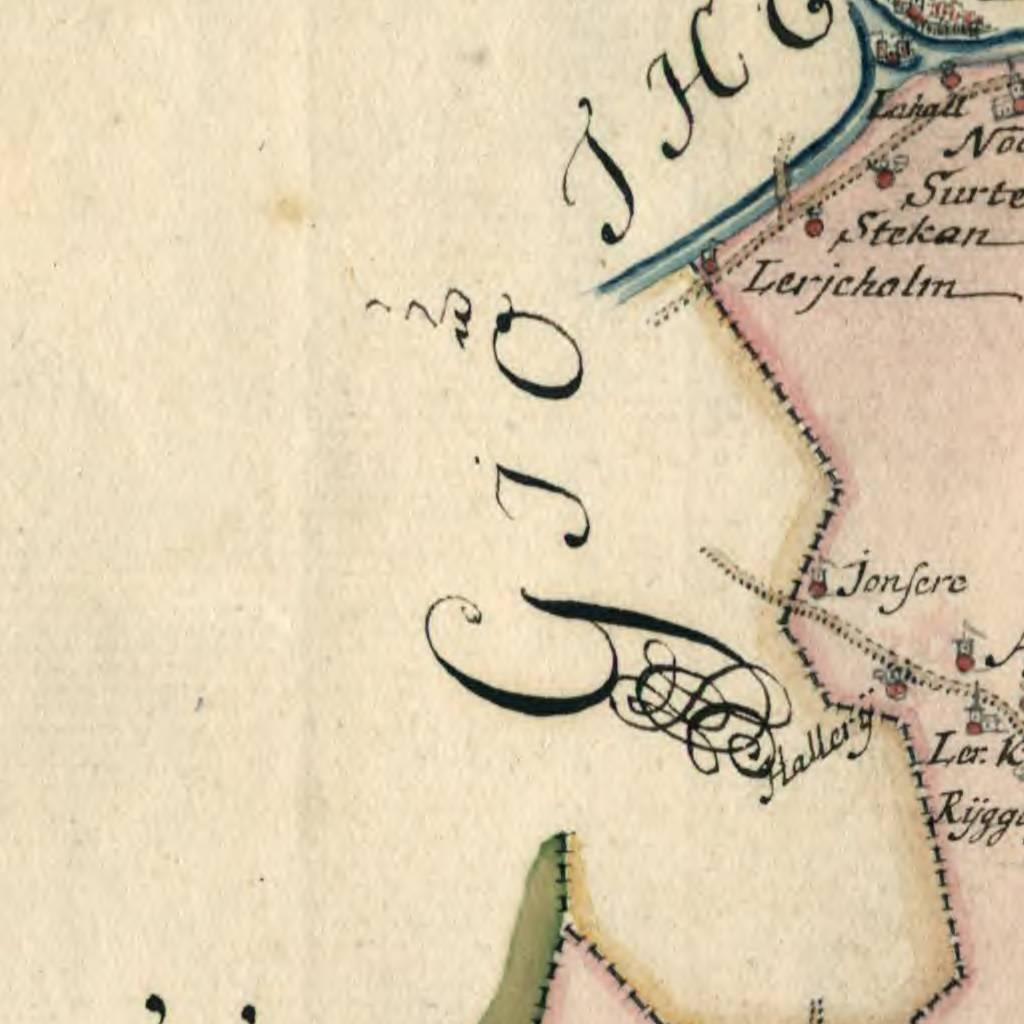 GIÖTHO
Lahall
Surte
Stekan
Lerjeholm
Jonsere
Hallerÿ
Ler. K
Rÿgg